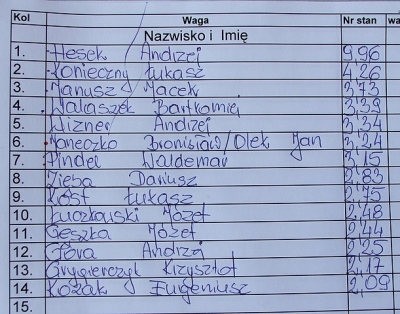 Kol Waga Nr stan wa
Nazwisko i Imię
1. Hesek Andrzej 9,96
2. Konieczny Łukasz 4,26
3. Janusz Jacek 3,73
4. Walaszek Bartłomiej 3,39
5. Wizner Andrzej 3,34
6. Maneczko Bronisław/Olek Jan 3,24
7. Pindel Waldemar 3,15
8. Zięba Dariusz 2,83
9. Kost Łukasz 2,75
10. Łuczkowski Józef 2,48
11. Geszka Józef 2,44
12. Góra Andrzej 2,25
13. Grygierczyk Krzysztof 2,17
14. Kozak Eugeniusz 2,09
15.